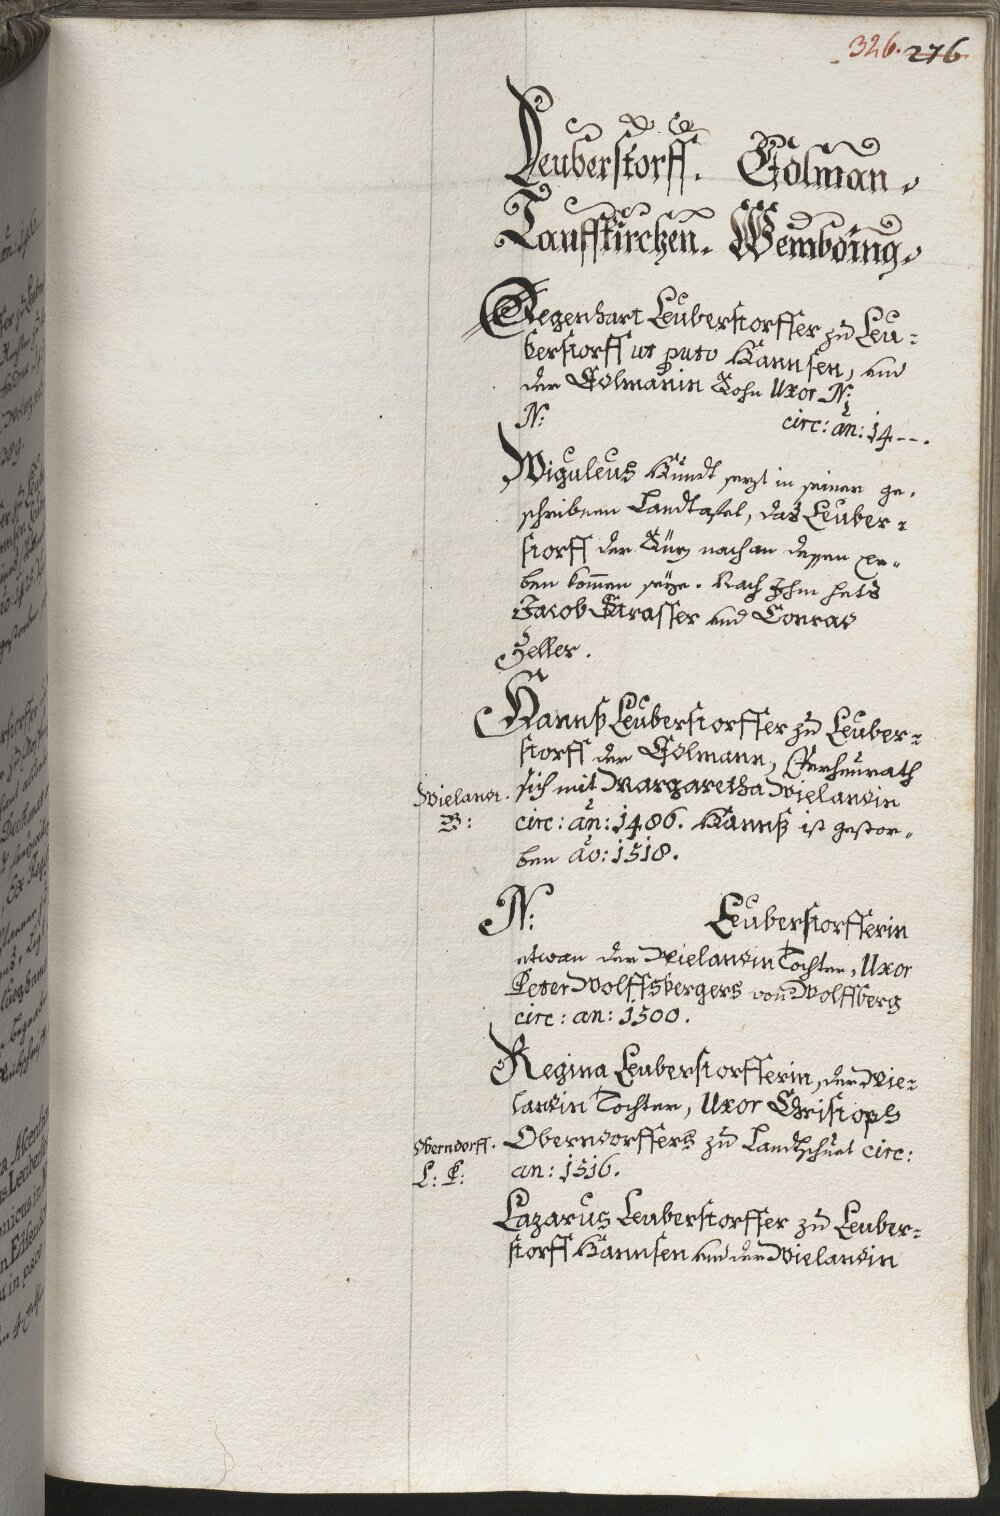 326. 276
Leuberstorff. Golman.
Tauffkirchen. Wembding.
Degenhart Leuberstorffer zu Leu-
berstorff ut puto Hannsen, und
der Golmanin Sohn Uxor N:
N: circ: an: 14--.
Wiguleus Hundt sezt in seiner ge-
schribnen Landtafel, das Leuber-
storff der Siz nach an dessen er-
ben kommen seye. Nach Ihm hats
Jacob Strasser und Conrad
Zeller.
Hannß Leuberstorffer zu Leuber-
storff der Golmann, Verheurath
sich mit Margaretha Wielandin
Wieland.
P: circ: an: 1486. Hannß ist gestor-
ben ao: 1518.
N: Leuberstorfferin
etwan der Wielandin Tochter, Uxor
Peter Wolffsbergers von Wolffberg
circ: an: 1500.
Regina Leuberstorfferin, der Wie-
landin Tochter, Uxor Christoph
Oberndorff. Oberndorffers zu Landtschuel circ:
L: P: an: 1516.
Lazarus Leuberstorffer zu Leuber-
storff Hannsen und der Wielandin